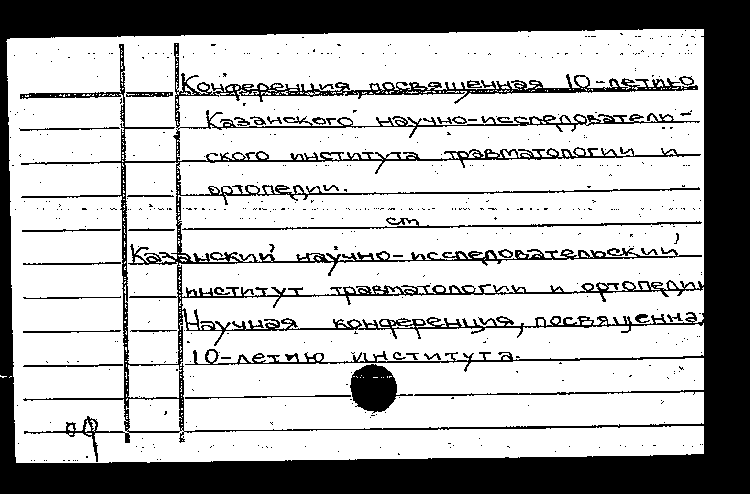 Конференция, посвященная 10-летию
Казанского научно-исследователь-
ского института травматологии и
ортопедии.
ст
Казанский научно-исследовательский
институт травматологии и ортопедии
Научная конференция, посвященна
10-летию института.